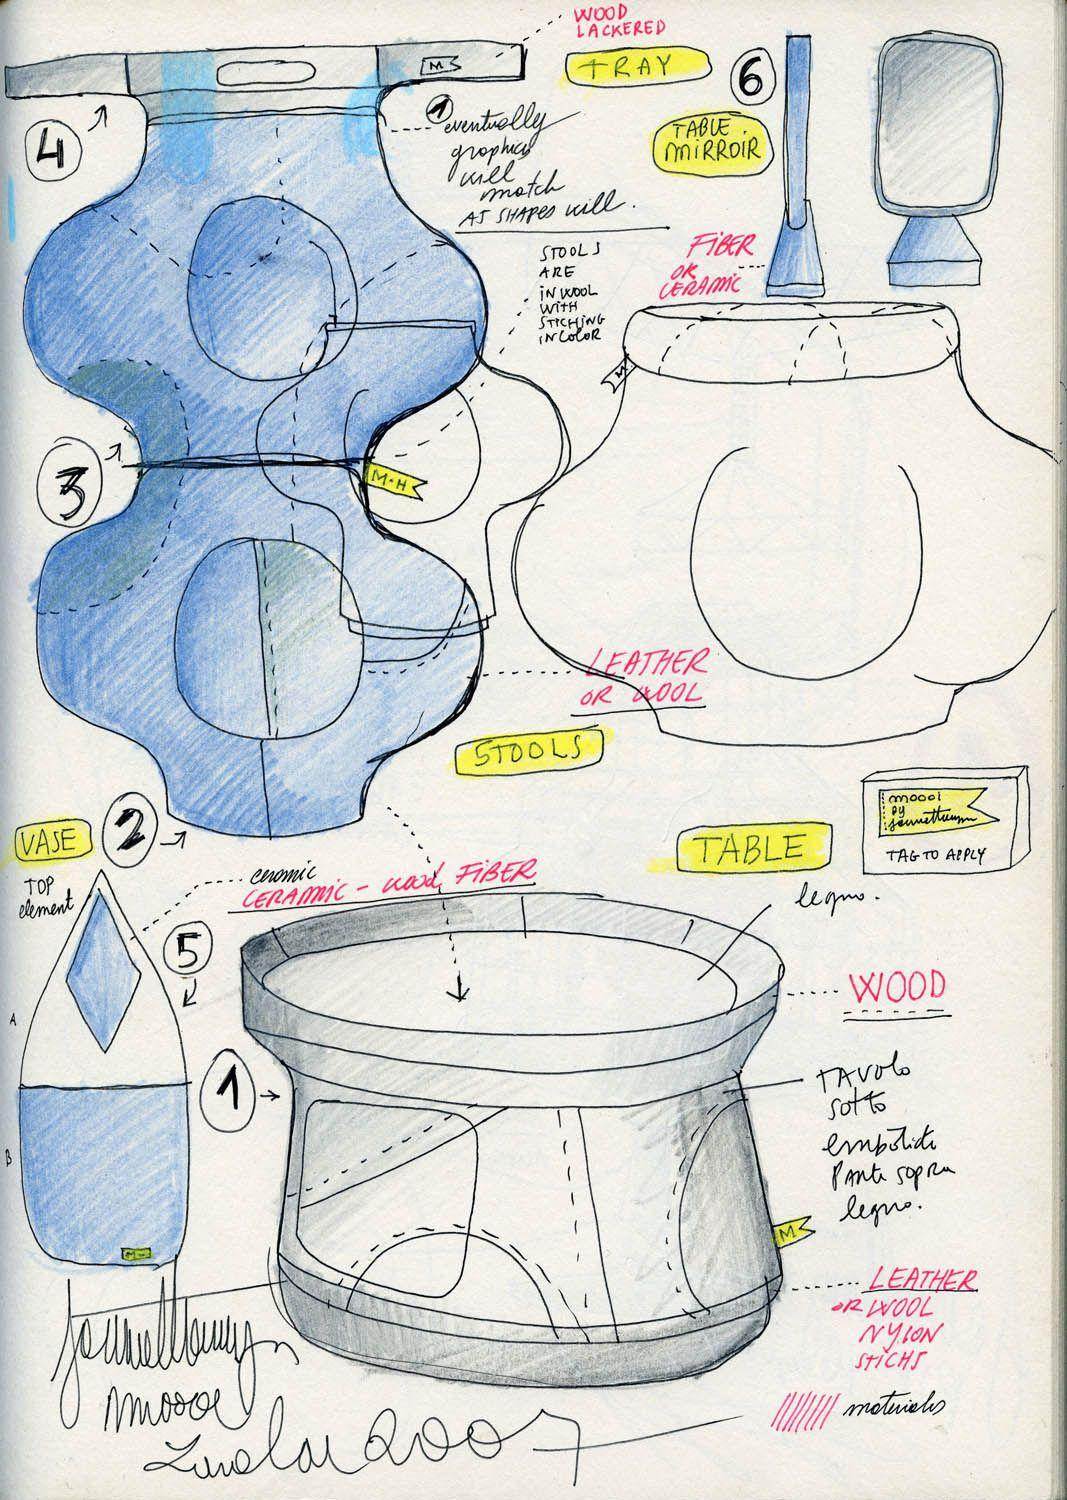 WOOD
LACKERED
TRAY
M
4
1
eventually
graphics
will
match
AS SHAPES will.
6
TABLE
MIRROIR
FIBER
OR
CERAMIC
STOOLS
ARE
IN WOOL
WITH
STICHING
IN COLOR
M
3
M·H
LEATHER
OR WOOL
STOOLS
VASE
2
TABLE
moool
by
TAG TO APPLY
TOP
element
ceramic
CERAMIC - wood FIBER
legno.
5
A
WOOD
1
TAVOLO
sotto
B
Parte sopra
legno.
M
M
LEATHER
OR WOOL
NYLON
STICHS
materials
2007